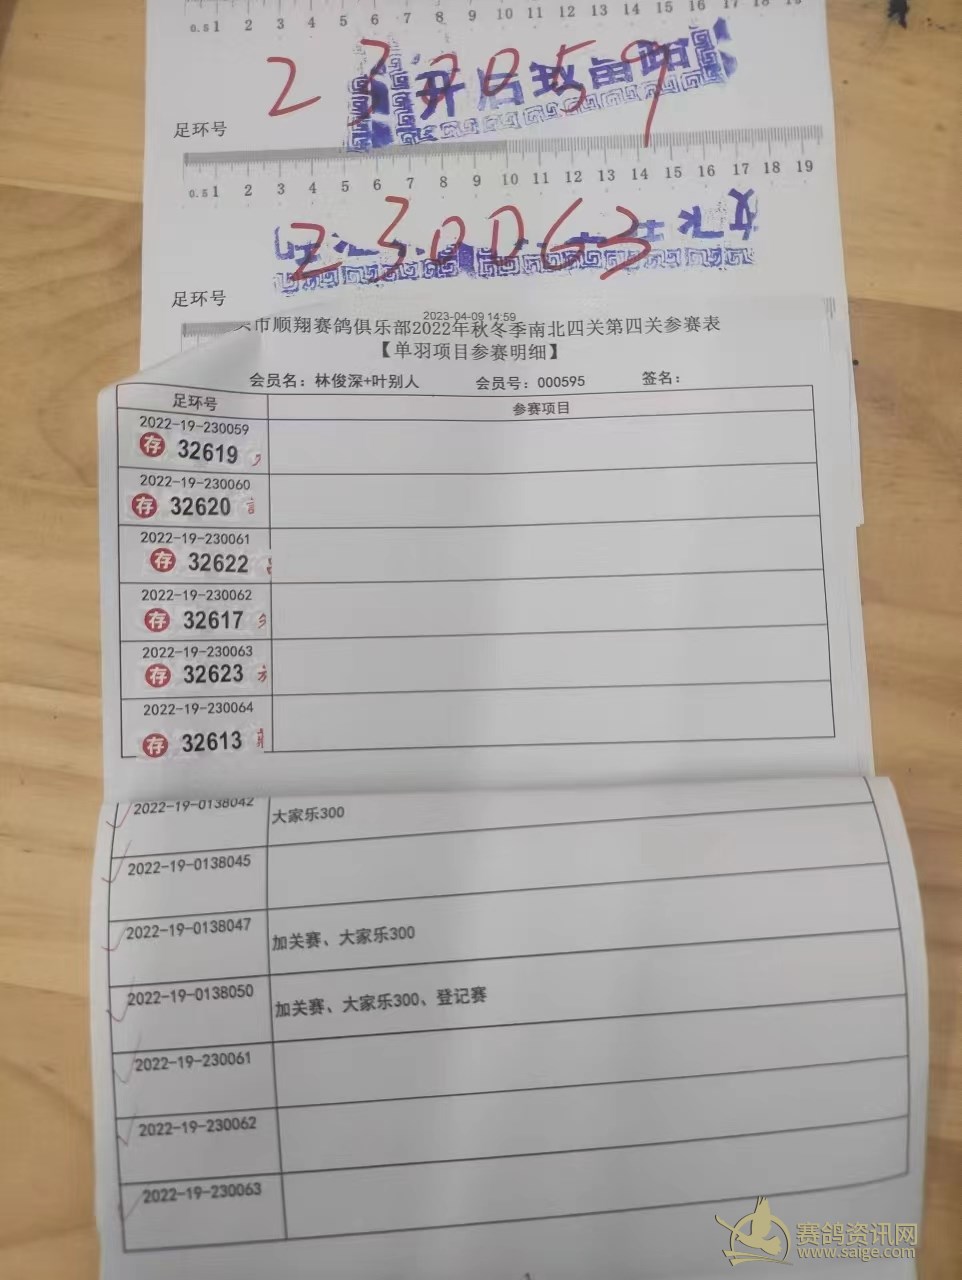 0.5 1 2 3 4 5 6 7 8 9 10 11 12 13 14 15 16 17 18 19
230059
足环号
0.5 1 2 3 4 5 6 7 8 9 10 11 12 13 14 15 16 17 18 19
230063
足环号
2023-04-09 14:59
市顺翔赛鸽俱乐部2022年秋冬季南北四关第四关参赛表
【单羽项目参赛明细】
会员名：林俊深+叶别人 会员号：000595 签名：
足环号 参赛项目
2022-19-230059
存 32619
2022-19-230060
存 32620
2022-19-230061
存 32622
2022-19-230062
存 32617
2022-19-230063
存 32623
2022-19-230064
存 32613
2022-19-0138042 大家乐300
2022-19-0138045
2022-19-0138047 加关赛、大家乐300
2022-19-0138050 加关赛、大家乐300、登记赛
2022-19-230061
2022-19-230062
2022-19-230063
赛鸽资讯网
www.saige.com